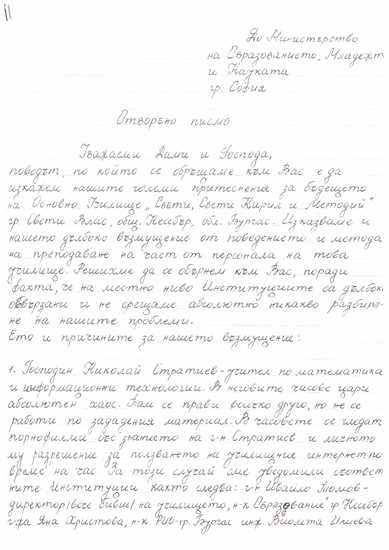 До Министерство
на Образованието, Младежта
и Науката
гр. София
Отворено писмо
Уважаеми Дами и Господа,
поводът, по който се обръщаме към Вас е да
изкажем нашите големи притеснения за бъдещето
на Основно Училище „Свети, Свети Кирил и Методий"
гр. Свети Влас, общ. Несебър, обл. Бургас. Изказваме и
нашето дълбоко възмущение от поведението и метода
на преподаване на част от персонала на това
училище. Решихме да се обърнем към Вас, поради
факта, че на местно ниво Институциите са дълбок
обвързани и не срещаме абсолютно никакво разбира-
не на нашите проблеми.
Ето и причините за нашето възмущение:
1. Господин Николай Стратиев - учител по математика
и информационни технологии. В неговите часове цари
абсолютен хаос. Там се прави всичко друго, но не се
работи по зададения материал. В часовете се гледат
порнофилми със знанието на г-н Стратиев и личното
му разрешение за ползването на училищния интернет по
време на час. За този случай сме уведомили съответ
ните Институции както следва: г-н Ивайло
директор (вече бивш) на училището, н-к „Образование" гр. Несебър
г-жа Яна Христова, н-к РИО - гр. Бургас инж. Виолета Илиева